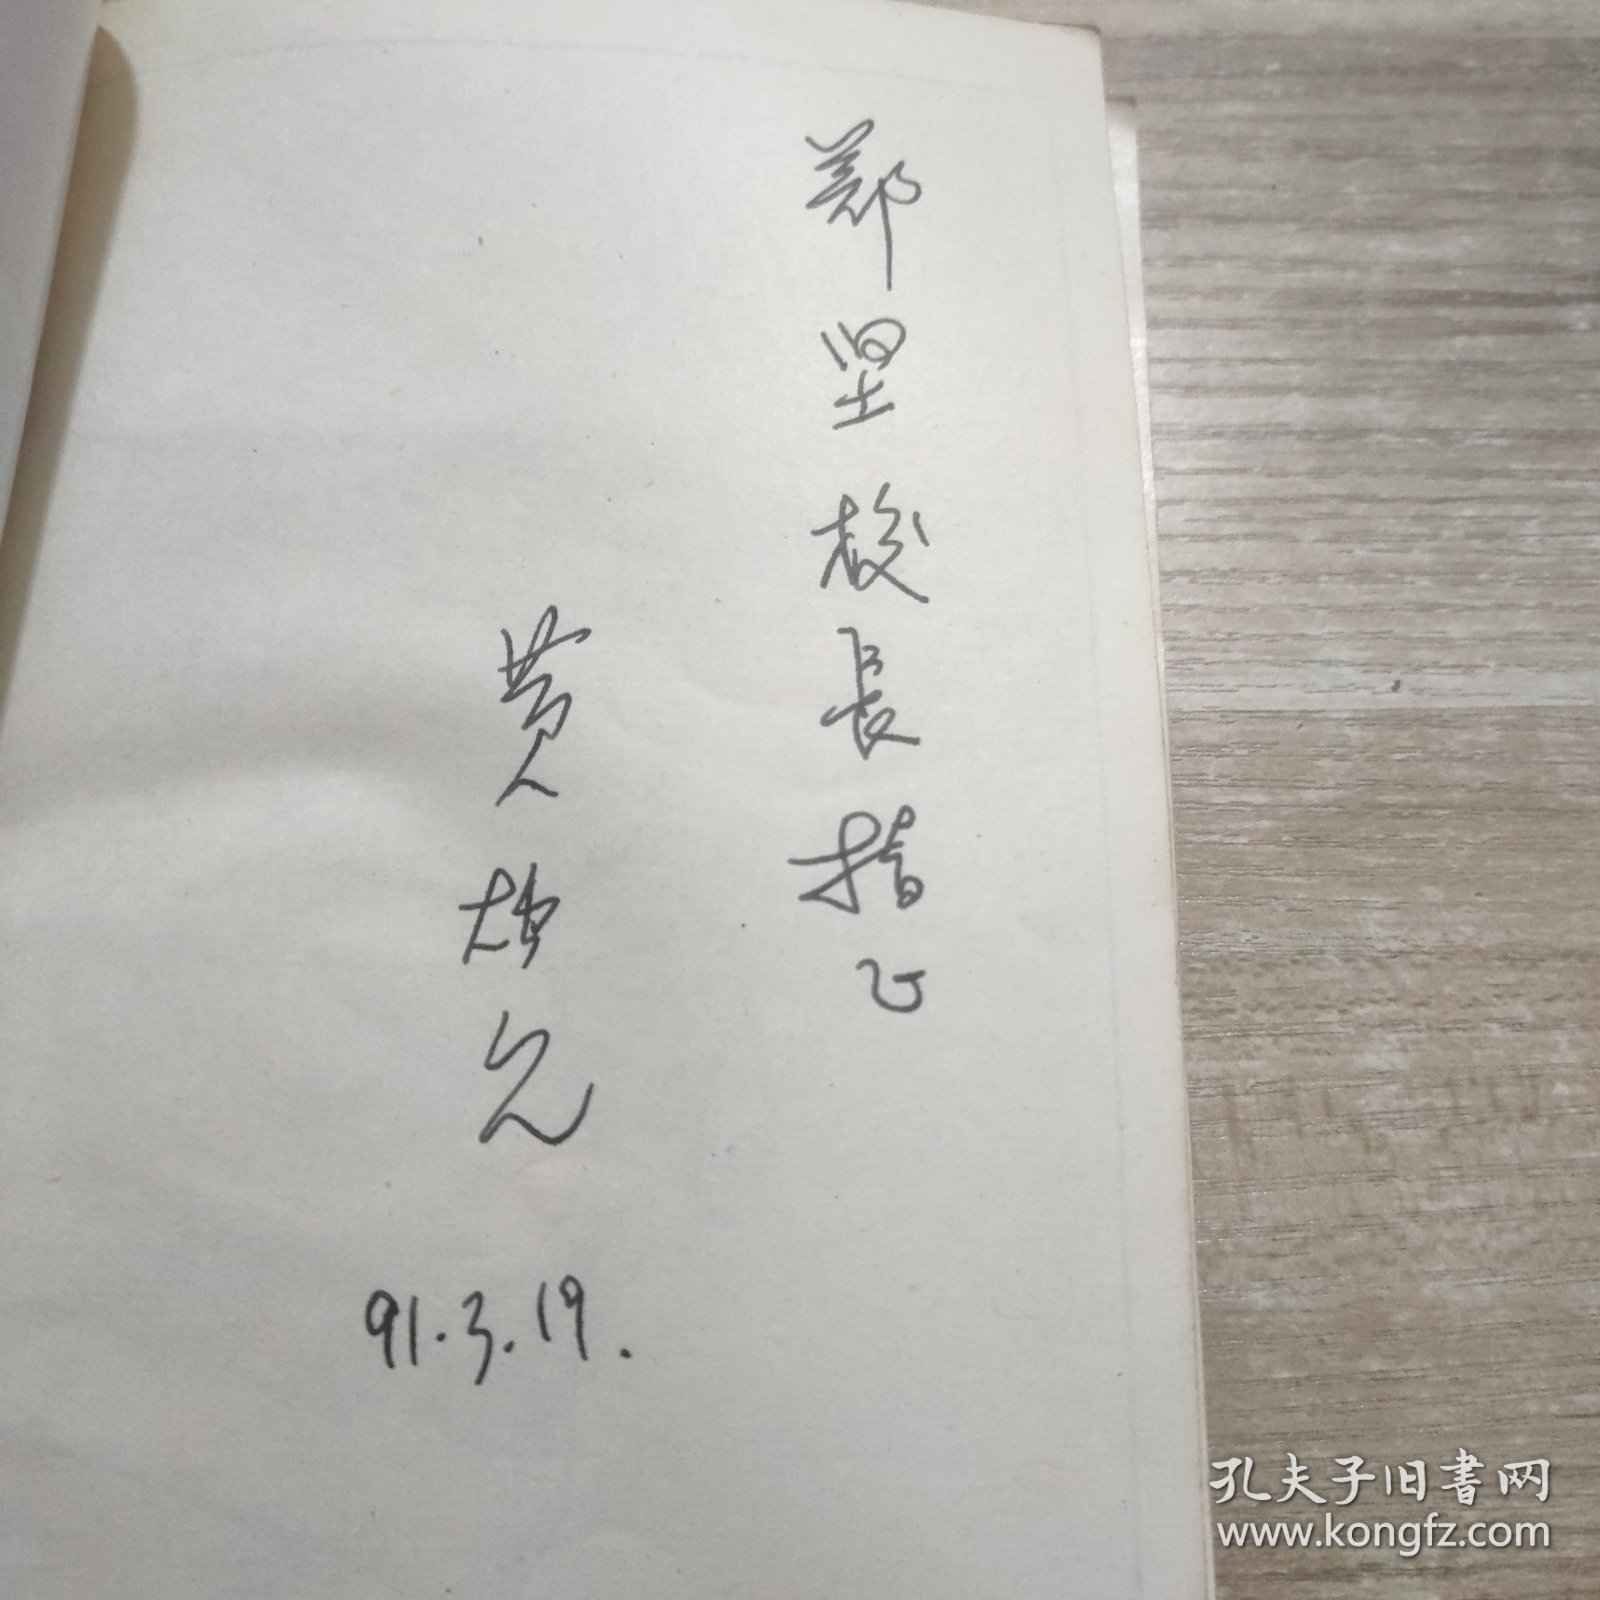 郑坚校長指正
黄焕
91.3.19.
孔夫子旧書网
www.kongfz.com